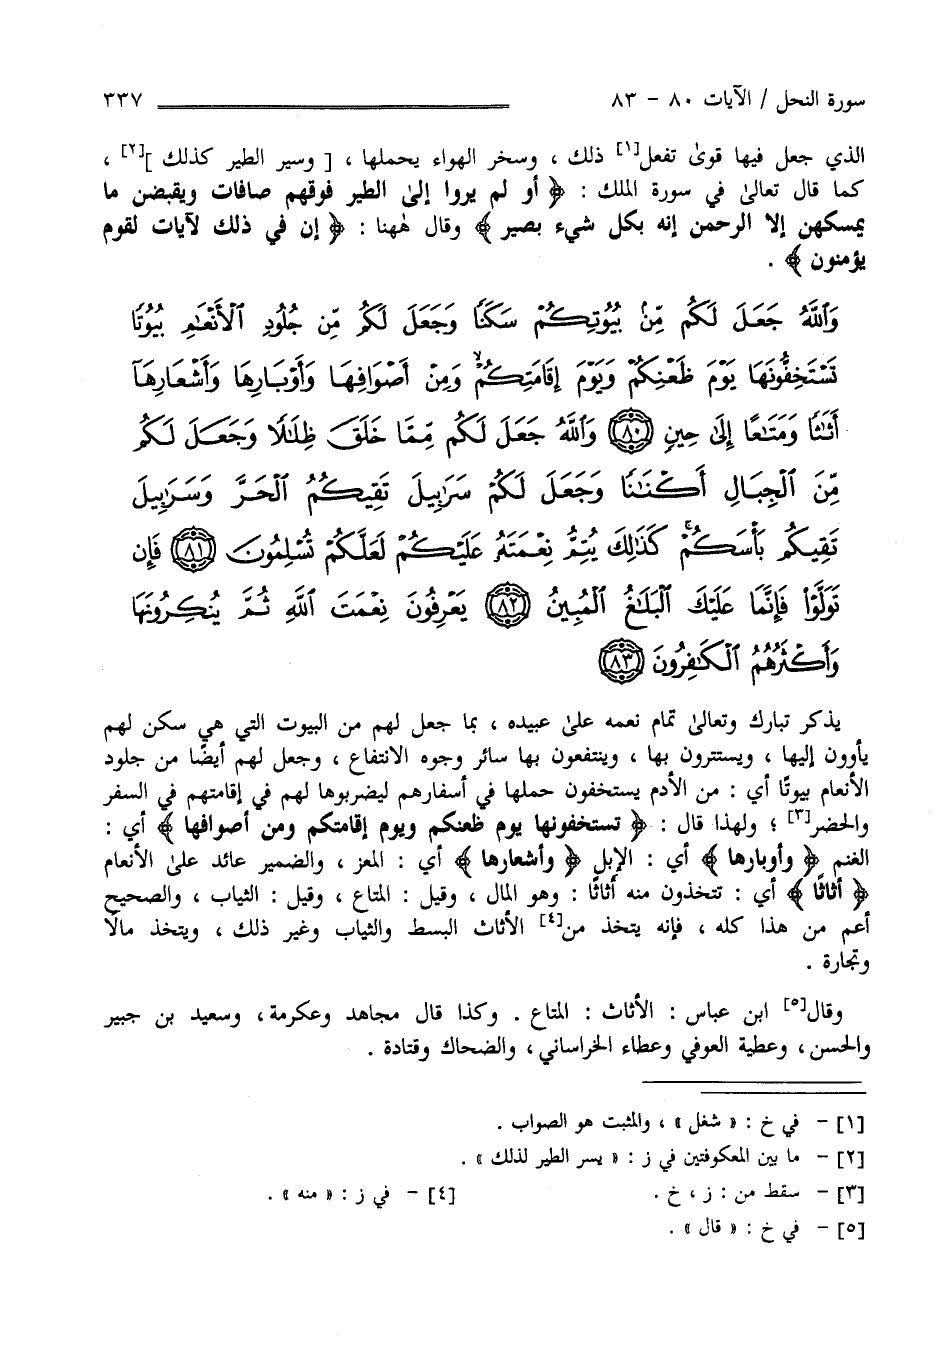 سورة النحل / الآيات ٨٠ - ٨٣ ٣٣٧
الذي جعل فيها قوىٰ تفعل[١] ذلك ، وسخر الهواء يحملها ، [ وسير الطير كذلك ][٢] ،
كما قال تعالىٰ في سورة الملك : ﴿ أو لم يروا إلىٰ الطير فوقهم صافات ويقبضن ما
يمسكهن إلا الرحمن إنه بكل شيء بصير ﴾ وقال هٰهنا : ﴿ إن في ذلك لآيات لقوم
يؤمنون ﴾ .
وَٱللَّهُ جَعَلَ لَكُم مِّنۢ بُيُوتِكُمۡ سَكَنٗا وَجَعَلَ لَكُم مِّن جُلُودِ ٱلۡأَنۡعَٰمِ بُيُوتٗا
تَسۡتَخِفُّونَهَا يَوۡمَ ظَعۡنِكُمۡ وَيَوۡمَ إِقَامَتِكُمۡۙ وَمِنۡ أَصۡوَافِهَا وَأَوۡبَارِهَا وَأَشۡعَارِهَآ
أَثَٰثٗا وَمَتَٰعًا إِلَىٰ حِينٖ ٨٠ وَٱللَّهُ جَعَلَ لَكُم مِّمَّا خَلَقَ ظِلَٰلٗا وَجَعَلَ لَكُم
مِّنَ ٱلۡجِبَالِ أَكۡنَٰنٗا وَجَعَلَ لَكُمۡ سَرَٰبِيلَ تَقِيكُمُ ٱلۡحَرَّ وَسَرَٰبِيلَ
تَقِيكُم بَأۡسَكُمۡۚ كَذَٰلِكَ يُتِمُّ نِعۡمَتَهُۥ عَلَيۡكُمۡ لَعَلَّكُمۡ تُسۡلِمُونَ ٨١ فَإِن
تَوَلَّوۡاْ فَإِنَّمَا عَلَيۡكَ ٱلۡبَلَٰغُ ٱلۡمُبِينُ ٨٢ يَعۡرِفُونَ نِعۡمَتَ ٱللَّهِ ثُمَّ يُنكِرُونَهَا
وَأَكۡثَرُهُمُ ٱلۡكَٰفِرُونَ ٨٣
يذكر تبارك وتعالىٰ تمام نعمه علىٰ عبيده ، بما جعل لهم من البيوت التي هي سكن لهم
يأوون إليها ، ويستترون بها ، وينتفعون بها سائر وجوه الانتفاع ، وجعل لهم أيضًا من جلود
الأنعام بيوتًا أي : من الأدم يستخفون حملها في أسفارهم ليضربوها لهم في إقامتهم في السفر
والحضر[٣] ؛ ولهذا قال : ﴿ تستخفونها يوم ظعنكم ويوم إقامتكم ومن أصوافها ﴾ أي :
الغنم ﴿ وأوبارها ﴾ أي : الإبل ﴿ وأشعارها ﴾ أي : المعز ، والضمير عائد علىٰ الأنعام
﴿ أثاثًا ﴾ أي : تتخذون منه أثاثًا : وهو المال ، وقيل : المتاع ، وقيل : الثياب ، والصحيح
أعم من هذا كله ، فإنه يتخذ من[٤] الأثاث البسط والثياب وغير ذلك ، ويتخذ مالًا
وتجارة .
وقال[٥] ابن عباس : الأثاث : المتاع . وكذا قال مجاهد وعكرمة، وسعيد بن جبير
والحسن، وعطية العوفي وعطاء الخراساني، والضحاك وقتادة .
[١] - في خ : « شغل » ، والمثبت هو الصواب .
[٢] - ما بين المعكوفتين في ز : « يسر الطير لذلك » .
[٣] - سقط من : ز ، خ . [٤] - في ز : « منه » .
[٥] - في خ : « قال » .